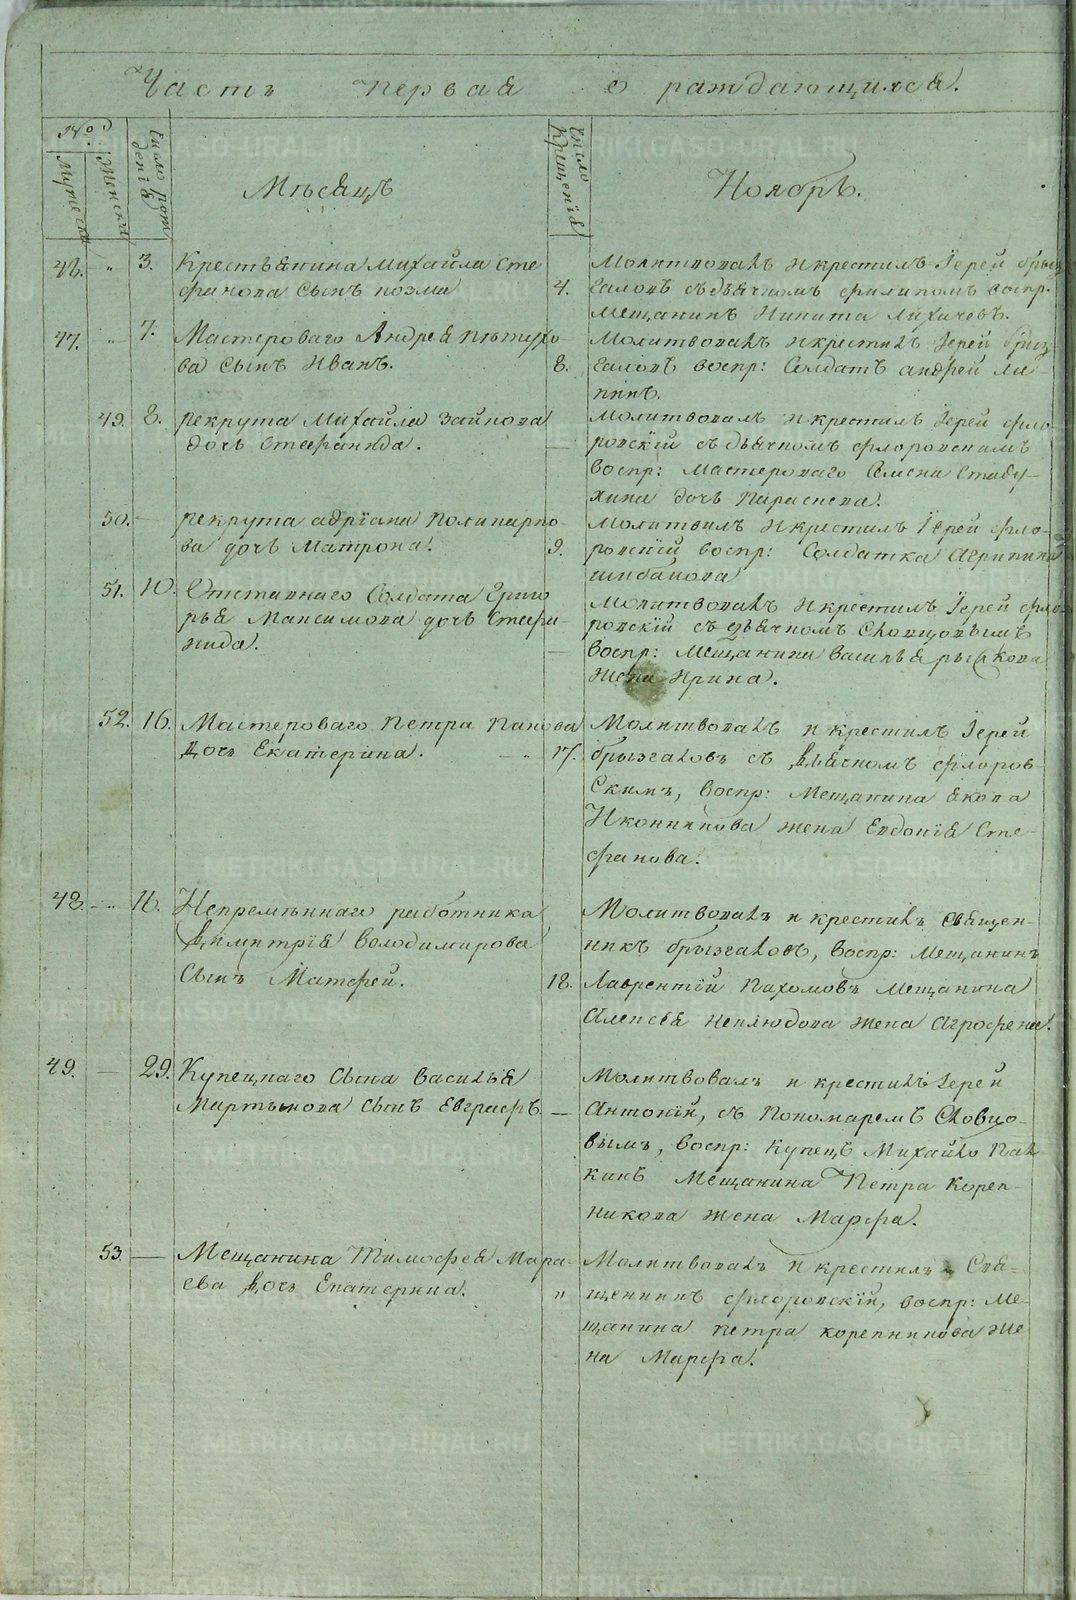 Часть первая о раждающихся.
№
Мужеска
Женска
Число рож
денія
Мѣсяцъ
Число
Крещенія
Ноябрь.
46. „ 3. Крестьянина Михайла Сте
фанова Сынъ козма
4.
Молитвовалъ и крестилъ Іерей брыз
галовъ съ дьячкомъ филипомъ воспр.
Мещанинъ Никита
47. „ 7. Мастероваго Андрея пѣтухо
ва Сынъ Иванъ.
8.
Молитвовалъ и крестилъ Іерей брыз
галовъ воспр: Солдатъ андрей ля
пинъ.
49. 8. рекрута Михайла Зайкова
дочь Стефанида.
—
Молитвовалъ и крестилъ Іерей фло
ровскій съ дьячкомъ флоровскимъ
воспр: Мастероваго Семена Стаду-
хина дочь Параскева.
50. — рекрута адріана поликарпо-
ва дочь Матрона.
9.
Молитвилъ и крестилъ Іерей фло-
ровскій воспр: Солдатка Агрипина
шибанова
51. 10. Отставнаго Солдата Григо
рья Максимова дочь Стефа-
нида.
—
Молитвовалъ и крестилъ Іерей фло
ровскій съ дьячкомъ Словцовымъ
воспр: Мещанина Василья рычкова
жена Ирина.
52. 16. Мастероваго петра панова
Дочь Екатерина.
17.
Молитвовалъ и крестилъ Іерей
брызгаловъ съ дьячкомъ флоров-
Скимъ, воспр: Мещанина Якова
Иконникова жена Евдокія Сте-
фанова.
48. „ 16. Непремѣннаго работника
Димитрія Володимирова
Сынъ Матфей.
18.
Молитвовалъ и крестилъ Священ-
никъ брызгаловъ, воспр: Мещанинъ
Лаврентій пахомовъ Мещанина
Алексея неклюдова жена Агрофена.
49. — 29. Купецкаго Сына Василья
Мартынова Сынъ Евграфъ.
—
Молитвовалъ и крестилъ Іерей
Антоній, съ пономаремъ Словцо-
вымъ, воспр: Купецъ Михайло пал
кинъ Мещанина Петра Корен-
никова жена Марфа.
53. — Мещанина Тимофея Мара-
ева Дочь Екатерина.
„
Молитвовалъ и крестилъ Свя-
щенникъ флоровскій, воспр: Ме-
щанина петра коренникова же
на Марфа.
METRIKI.GASO-URAL.RU